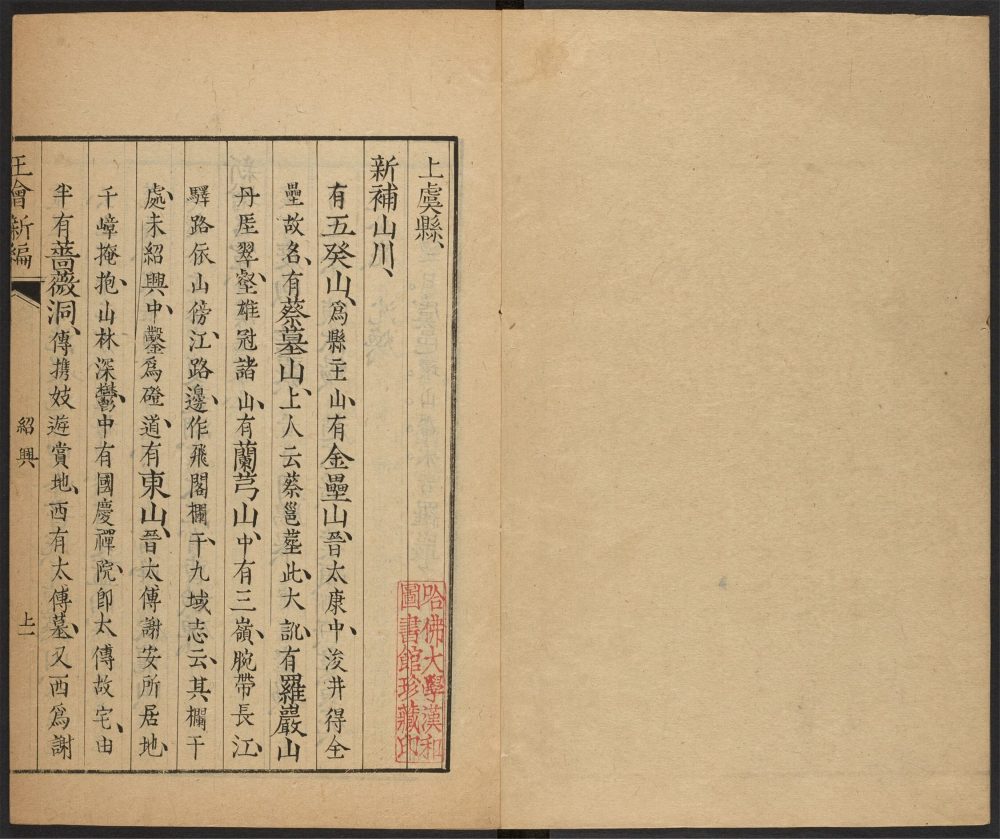 上虞縣、
新補山川、
有五癸山、爲縣主山、有金罍山、晉太康中、浚井得金
罍故名、有蔡墓山、上人云蔡邕墓此、大訛、有羅巖山
丹厓翠壑、雄冠諸山、有蘭芎山、中有三嶺、腕帶長江、
驛路依山傍江、路邊、作飛閣欄干、九域志云、其欄干
處、未紹興中、鑿爲磴道、有東山、晉太傅謝安所居地、
千嶂掩抱、山林深鬱、中有國慶禪院、卽太傅故宅、由
半有薔薇洞、傳携妓遊賞地、西有太傅墓、又西爲謝
王會新編
紹興
上一
哈佛大學漢和
圖書館珍藏印